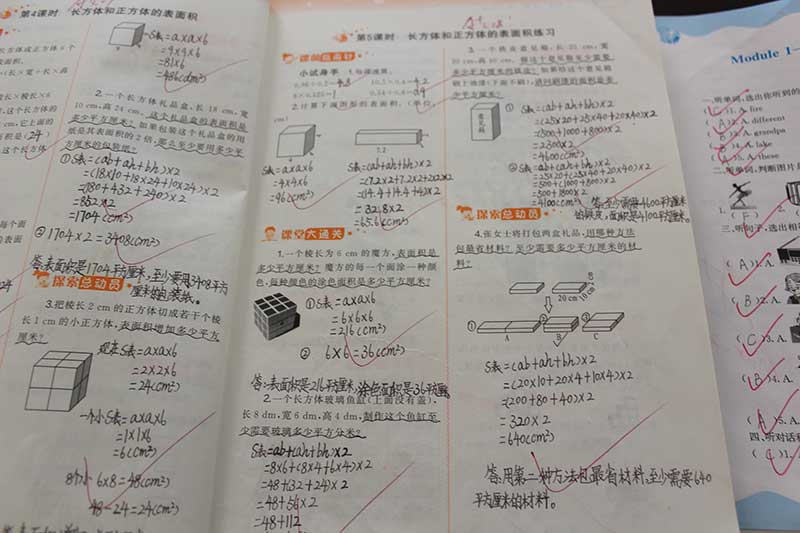 第4课时 长方体和正方体的表面积
S表=a×a×6
=9×9×6
=81×6
=486(cm²)
2.一个长方体礼品盒,长18 cm,宽
10 cm,高24 cm,这个礼品盒的表面积是
多少平方厘米?如果包装这个礼品盒的用
纸是其表面积的2倍,那么至少要用多少平
方厘米的包装纸?
①S表=(ab+ah+bh)×2
=(18×10+18×24+10×24)×2
=(180+432+240)×2
=852×2
=1704(cm²)
②1704×2=3408(cm²)
答:表面积是1704平方厘米,至少要用3408平方
厘米的包装纸。
探索总动员
3.把棱长2 cm的正方体切成若干个棱
长1 cm的小正方体,表面积增加多少平方
厘米?
现在S表=a×a×6
=2×2×6
=24(cm²)
一个小S表=a×a×6
=1×1×6
=6(cm²)
8个小 6×8=48(cm²)
48-24=24(cm²)
第5课时 长方体和正方体的表面积练习
小试身手
2.计算下面图形的表面积。(单位:
cm)
7.2
S表=a×a×6
=4×4×6
=96(cm²)
S表=(ab+ah+bh)×2
=(7.2×2+7.2×2+2×2)×2
=(14.4+14.4+4)×2
=32.8×2
=65.6(cm²)
课堂大通关
1.一个棱长为6 cm的魔方,表面积是
多少平方厘米?魔方的每一个面涂一种颜
色,每种颜色的涂色面积是多少平方厘米?
①S表=a×a×6
=6×6×6
=216(cm²)
② 6×6=36(cm²)
答:表面积是216平方厘米,涂色面积是36平方厘米。
2.一个长方体玻璃鱼缸(上面没有盖),
长8 dm,宽6 dm,高4 dm,制作这个鱼缸至
少需要玻璃多少平方分米?
S表=ab+(ah+bh)×2
=8×6+(8×4+6×4)×2
=48+(32+24)×2
=48+56×2
=48+112
3.一个铁皮意见箱,长25 cm,宽
20 cm,高40 cm,
意见箱
①S表=(ab+ah+bh)×2
=(25×20+25×40+20×40)×2
=(500+1000+800)×2
=2300×2
=4600(cm²)
②S表=ab+(ah+bh)×2
=25×20+(25×40+20×40)×2
=500+(1000+800)×2
=500+1800×2
=4100(cm²)
答:至少需要4600平方厘米
的铁皮,面积是4100平方厘米。
探索总动员
4.张女士将打包两盒礼品,用哪种方法
包最省材料?至少需要多少平方厘米的材
料?
20 cm 10 cm
① ② ③
A B C
S表=(ab+ah+bh)×2
=(20×10+20×4+10×4)×2
=(200+80+40)×2
=320×2
=640(cm²)
答:用第二种方法包最省材料,至少需要640
平方厘米的材料。
Module 1
一、听单词,选出你听到的
(C)1.A. fire
(A)2.A. different
(B)3.A. grandpa
(B)4.A. lake
(A)5.A. these
二、听单词,判断图片
1.
(F)
三、听句子,选出相符
(A)1.A.
(B)2.A.
(C)3.A.
(B)4.A.
(A)5.A.
四、听对话